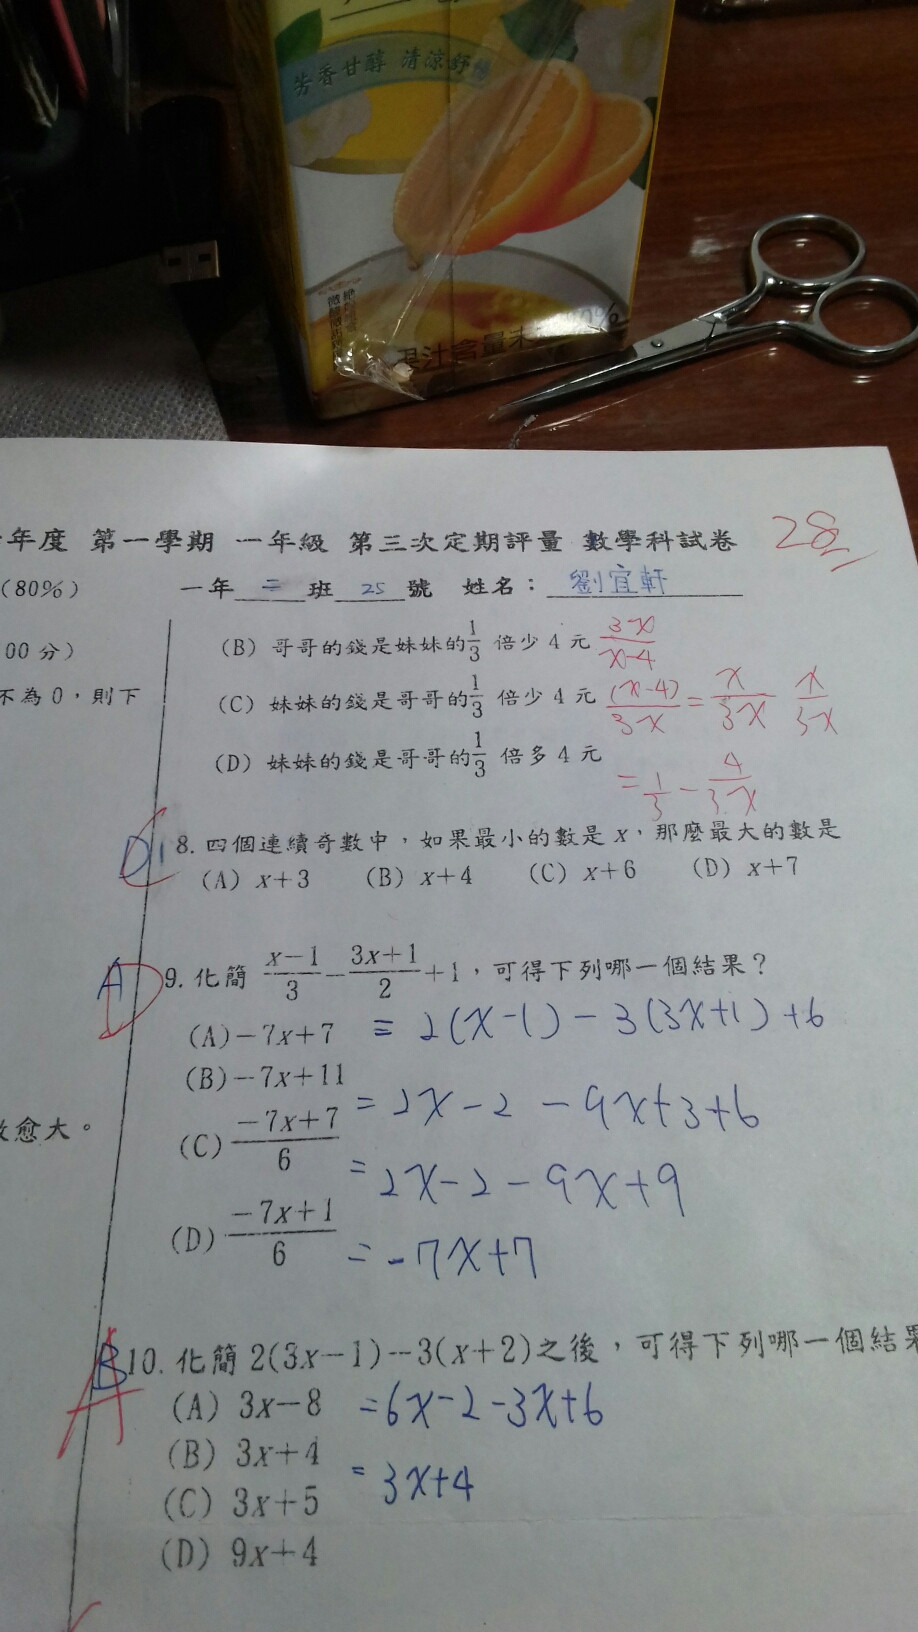 芳香甘醇 清涼舒
果汁含量未
年度 第一學期 一年級 第三次定期評量 數學科試卷 28
(80%) 一年 二 班 25 號 姓名： 劉宜軒
00 分)
不為 0，則下
(B) 哥哥的錢是妹妹的1/3 倍少 4 元 3x/x-4
(C) 妹妹的錢是哥哥的1/3 倍少 4 元 (x-4)/3x = x/3x x/3x
(D) 妹妹的錢是哥哥的1/3 倍多 4 元 = 1/3 - 4/3x
D C 8. 四個連續奇數中，如果最小的數是 x，那麼最大的數是
(A) x+3 (B) x+4 (C) x+6 (D) x+7
A D 9. 化簡 x-1/3 - 3x+1/2 +1，可得下列哪一個結果？
(A) -7x+7 = 2(x-1) - 3(3x+1) +6
(B) -7x+11
= 2x-2 - 9x+3+6
愈大。
(C) -7x+7/6
= 2x-2-9x+9
(D) -7x+1/6
= -7x+7
B A 10. 化簡 2(3x-1)--3(x+2)之後，可得下列哪一個結果
(A) 3x-8 =6x-2-3x+6
(B) 3x+4
= 3x+4
(C) 3x+5
(D) 9x+4